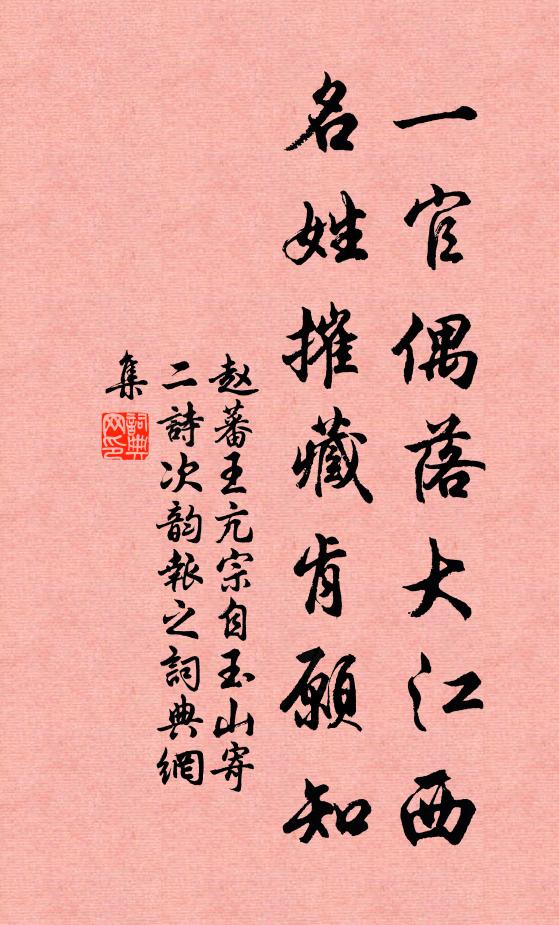 一官偶落大江西
名姓摧藏肯願知
赵蕃王亢宗自玉山寄
二詩次韵報之詞典網
集
詞典网印